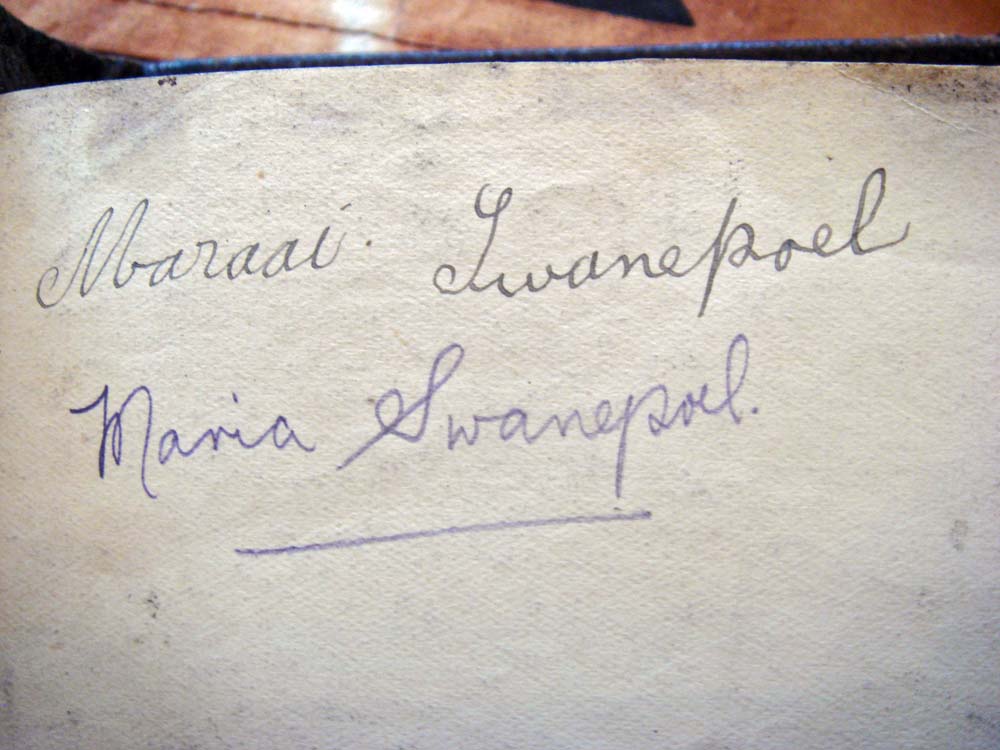 Maraai. Swanepoel
Maria Swanepoel.